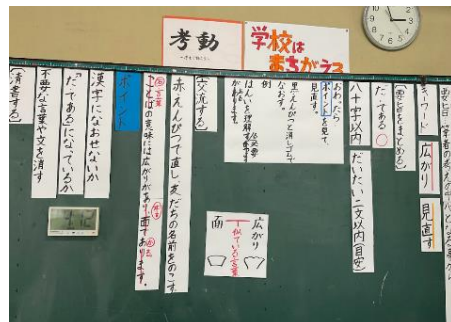 考動
学校は
まちがうろ
要旨
キーワード
広がり
見直す
（要旨をまとめる）
だ・である
八十字以内
だいたい二文以内（目安）
おわったら
ポイントを見て、
見直す。
黒えんぴつと消しゴムで
なおす。
例
広がり
似ている言葉
面
（交流する）
赤えんぴつで直し、友だちの名前をのこす。
ことばの意味には広がりがあり、面であります。
ポイント
漢字になおせないか
「だ・である」になっているか
不要な言葉や文を消す
（清書する）